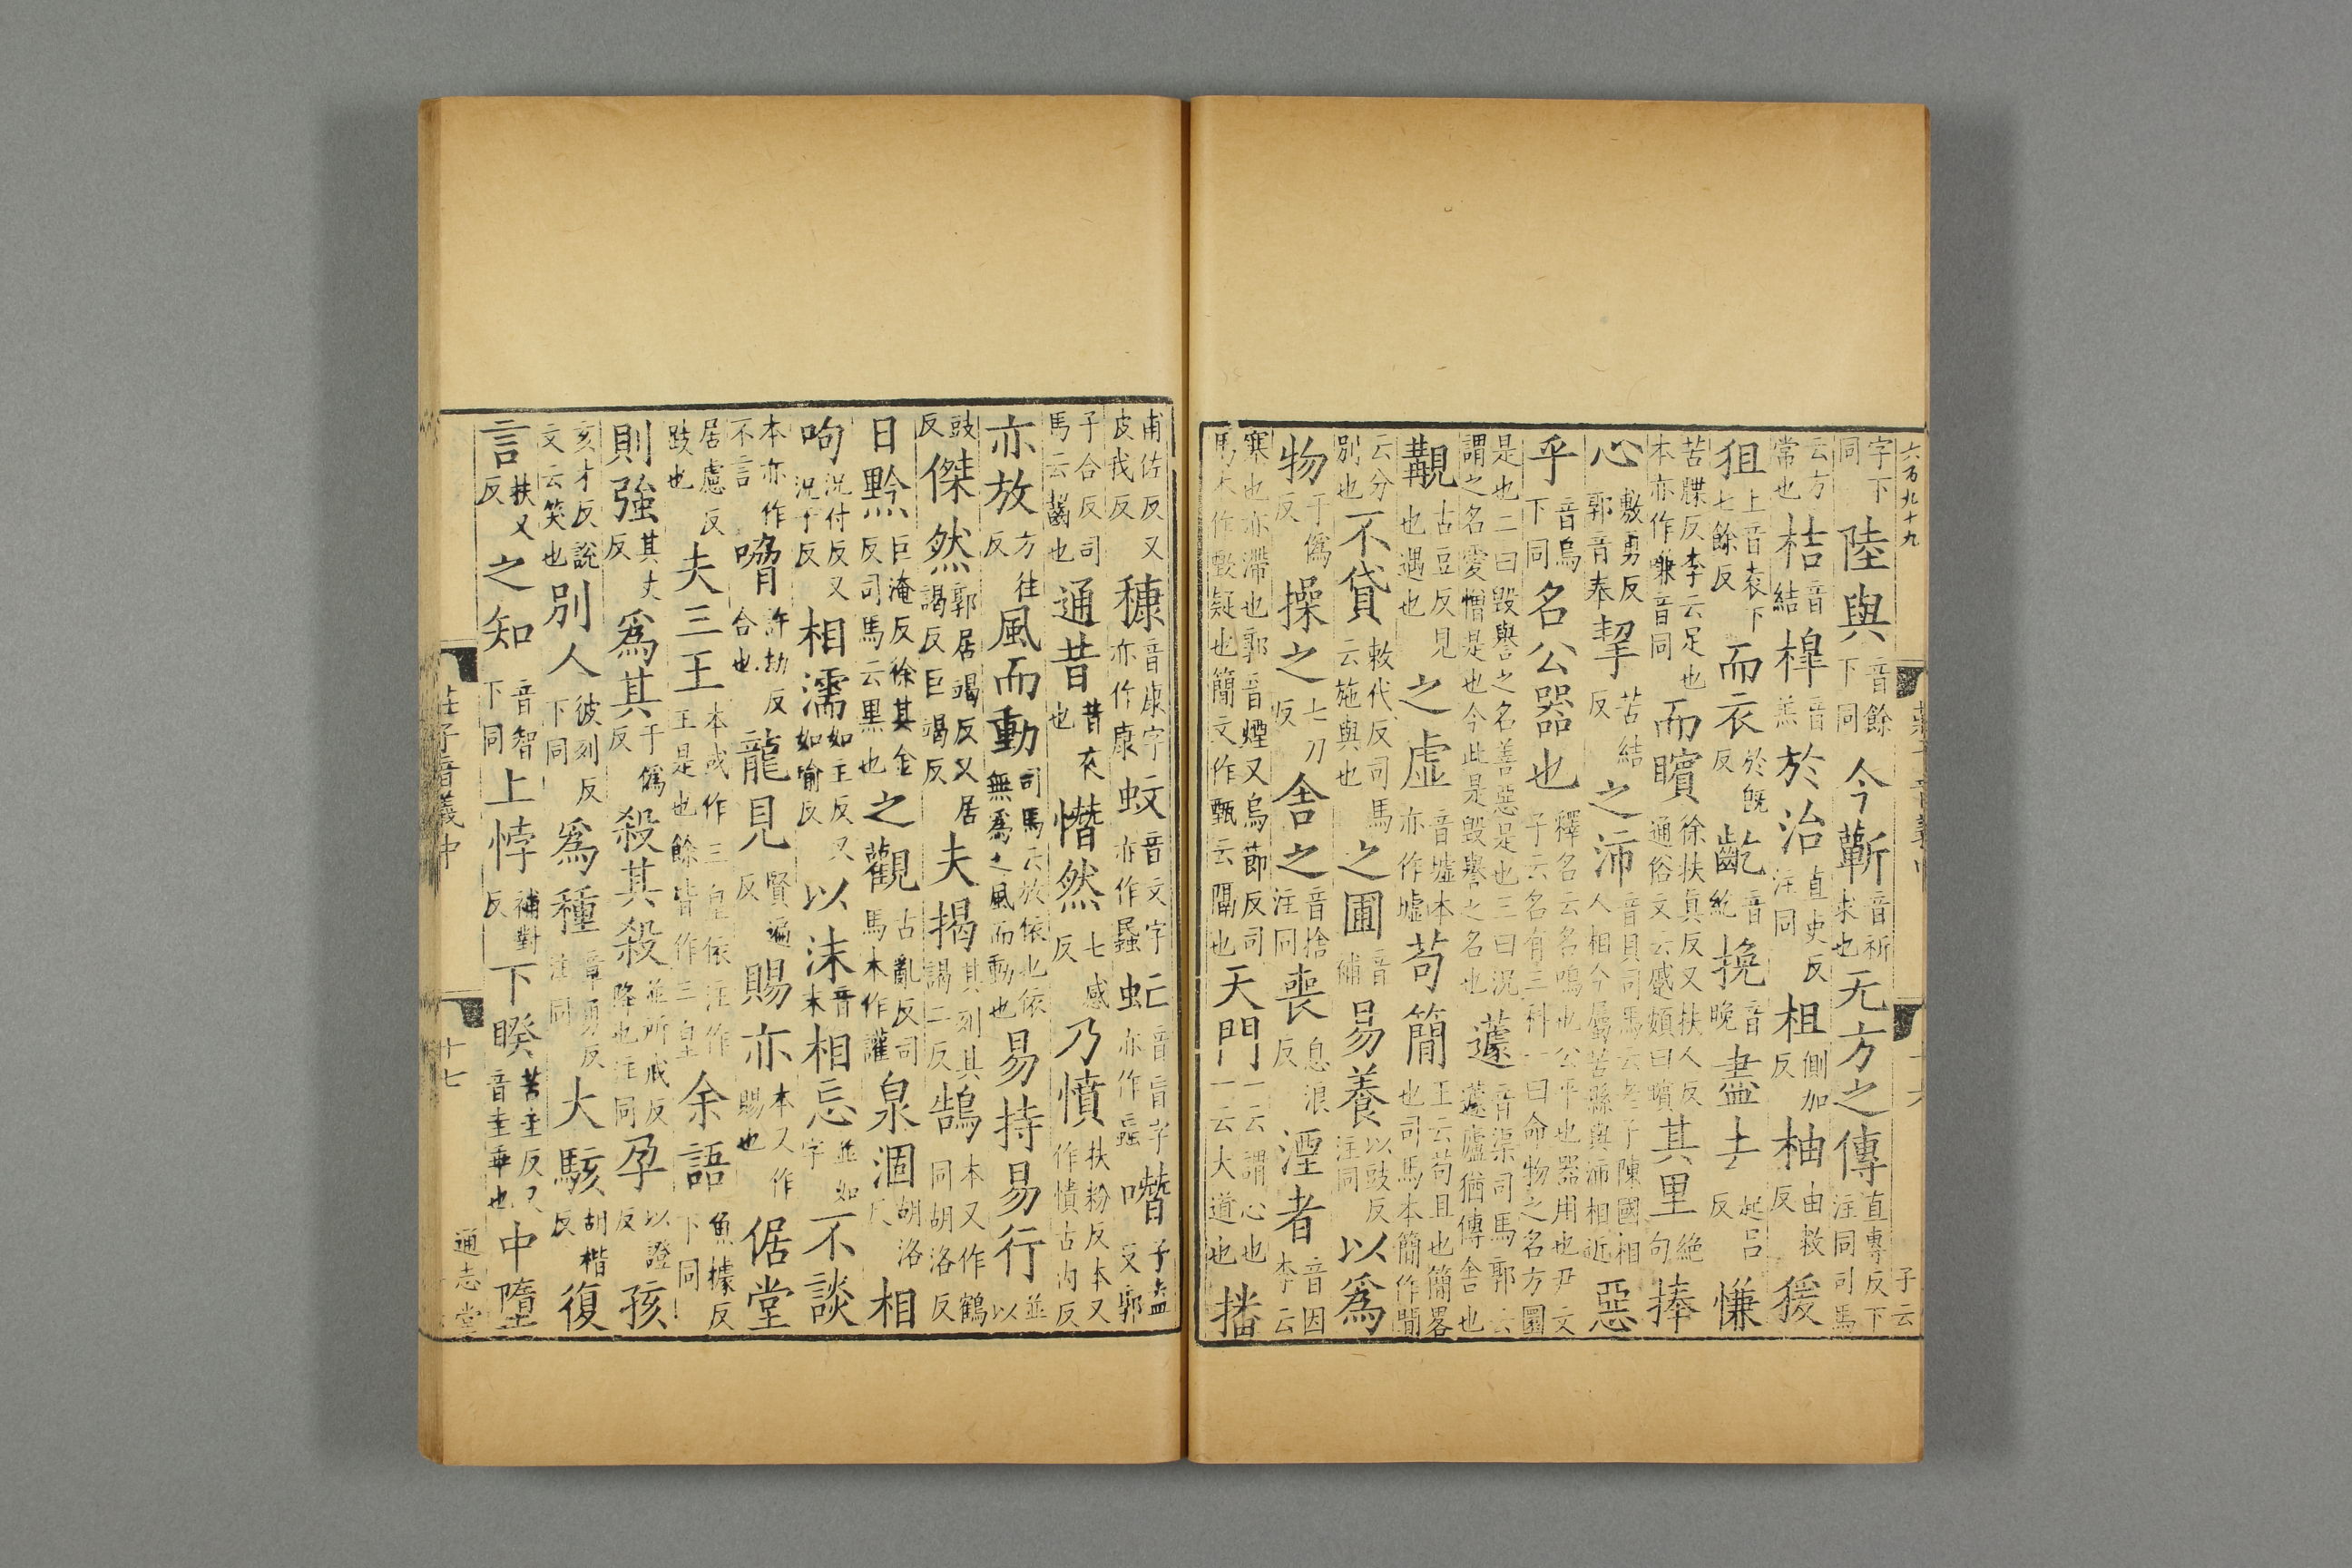 六百九十九
字下同陸與音餘下同今蘄音祈求也无方之傳直專反下注同司馬
云方常也桔音結槹音羔於治直吏反注同柤側加反柚由救反猨
狙上音袁下七餘反而衣於既反齕音紇挽音晚盡去起呂反慊
苦牒反李云足也本亦作嗛音同而矉徐扶真反又扶人反通俗文云蹙頞曰矉其里絕句捧
心敷勇反郭音奉挈苦結反之沛音貝司馬云老子陳國相人相今屬苦縣與沛相近惡
乎音烏下同名公器也釋名云名鳴也公平也器用也尹文子云名有三科一曰命物之名方圓
是也二曰毀譽之名善惡是也三曰況謂之名愛憎是也今此是毀譽之名也蘧音渠司馬郭云蘧廬猶傳舍也
覯古豆反見也遇也之虛音墟本亦作墟苟簡王云苟且也簡畧也司馬本簡作閒
云分別也不貸敕代反司馬云施與也之圃音補易養以豉反注同以爲
物于僞反操之七刀反舍之音捨注同喪息浪反湮者音因李云
塞也亦滯也郭音煙又烏節反司馬本作歅疑也簡文作甄云隔也天門一云謂心也一云大道也播
甫佐反又皮我反穅音康字亦作康蚊音文字亦作蟁虻音盲字亦作蝱噆子盍反郭
子合反司馬云齧也通昔昔夜也憯然七感反乃憤扶粉反本又作憒古內反
亦放方往反風而動司馬云放依也依無爲之風而動也易持易行並以
豉反傑然郭居竭反又居謁反巨竭反夫揭其列其謁二反鵠本又作鶴同胡洛反
日黔巨淹反徐其金反司馬云黑也之觀古亂反司馬本作讙泉涸胡洛反相
呴況付反又況于反相濡如主反又如喻反以沫音末相忘並如字不談
本亦作不言嗋許劫反合也龍見賢遍反賜亦本又作賜也倨堂
居慮反跂也夫三王本或作三皇依注作王是也餘皆作三皇余語魚據反下同
則強其丈反爲其于僞反殺其殺並所戒反降也注同孕以證反孩
亥才反說文云笑也別人彼列反下同爲種章勇反注同大駭胡楷反復
言扶又反之知音智下同上悖補對反下睽苦圭反又音圭乖也中墮
莊子音義中 十七 通志堂